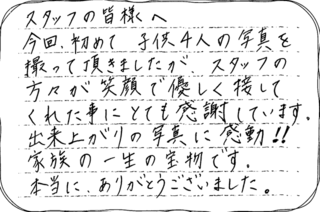 スタッフの皆様へ
今回、初めて 子供4人の写真を
撮って頂きましたが スタッフの
方々が笑顔で優しく接して
くれた事にとても感謝しています。
出来上がりの写真に感動!!
家族の一生の宝物です。
本当に、ありがとうございました。